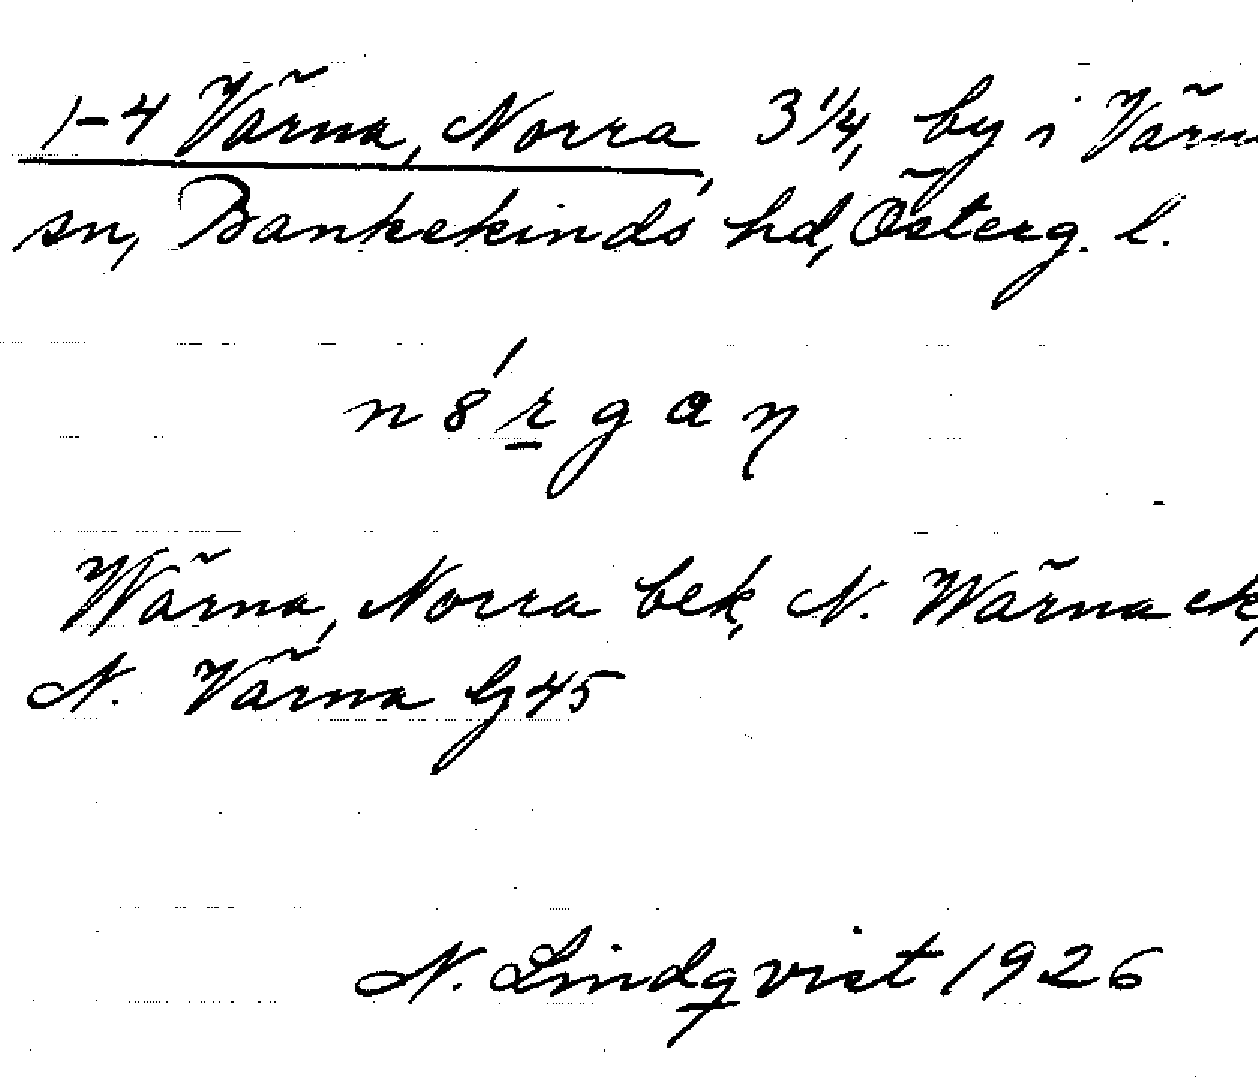 1-4 Värna, Norra, 3 1/4, by i Värna
sn, Bankekinds hd, Österg. l.
Wärna, Norra bek, N. Wärna ek,
N. Värna Gj45
N. Lindqvist 1926